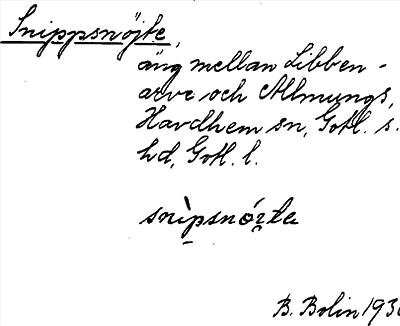 Snippsnöjte,
äng mellan Libben-
arve och Allmungs,
Havdhem sn, Gotl. s.
hd, Gotl. l.
snìpsnórta
B. Bolin 193